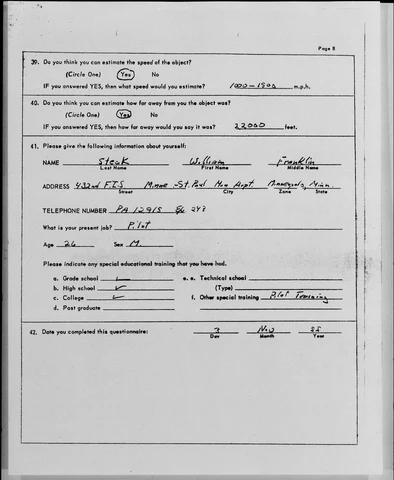 Page 8
39. Do you think you can estimate the speed of the object?
(Circle One) Yes No
IF you answered YES, then what speed would you estimate? 1000-1500 m.p.h.
40. Do you think you can estimate how far away from you the object was?
(Circle One) Yes No
IF you answered YES, then how far away would you say it was? 22000 feet.
41. Please give the following information about yourself:
NAME Steak William Franklin
Last Name First Name Middle Name
ADDRESS 432nd F.I.S Minne-St. Paul Mun Arpt. Minneapolis, Minn.
Street City Zone State
TELEPHONE NUMBER PA 12915 Ex 247
What is your present job? Pilot
Age 26 Sex M.
Please indicate any special educational training that you have had.
a. Grade school ✓ e. Technical school
b. High school ✓ (Type)
c. College ✓ f. Other special training Pilot Training
d. Post graduate
42. Date you completed this questionnaire: 3 Nov 55
Day Month Year